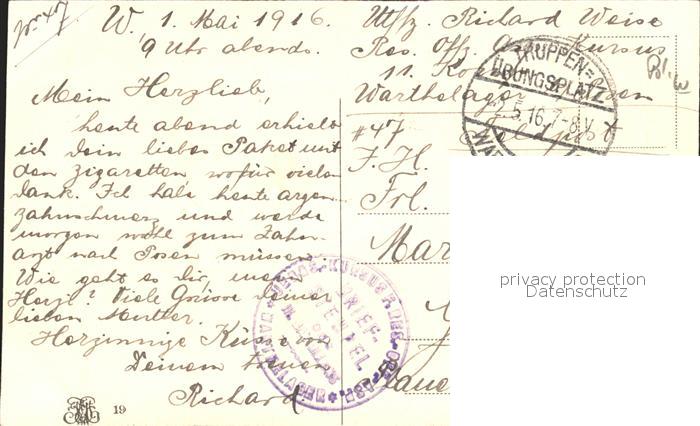 No 47.
W. 1. Mai 1916.
9 Uhr abends.
Mein Herzlieb,
heute abend erhielt
ich Dein liebes Paket mit
den Zigaretten, wofür vielen
Dank. Ich habe heute argen
Zahnschmerz und werde
morgen wohl zum Zahn-
arzt nach Posen müssen.
Wie geht es Dir, mein
Herz? Viele Grüsse Deiner
lieben Mutter.
Herzinnige Küsse von
Deinem treuen
Richard
19
Uffz. Richard Weise
Res. Offz. Asp. Kursus
11. Posen
Warthelager
Feldpost
#47
F. H.
Frl.
Mar
TRUPPEN=
ÜBUNGSPLATZ
2.5.16.7-8V.
WAR
BRIEF-
STEMPEL
KURSUS
WARTHELAGER
privacy protection
Datenschutz